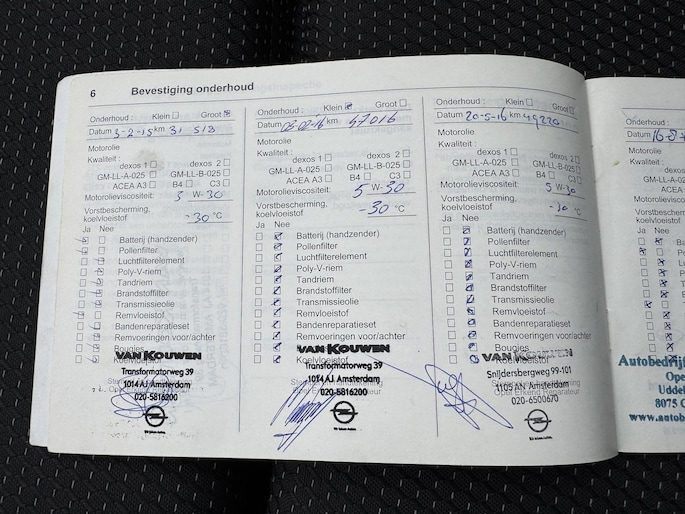 6 Bevestiging onderhoud
Onderhoud : Klein Groot
Datum 3-2-15 km 31 518
Motorolie
Kwaliteit :
dexos 1 dexos 2
GM-LL-A-025 GM-LL-B-025
ACEA A3 B4 C3
Motorolieviscositeit: 5 W-30
Vorstbescherming,
koelvloeistof -30 °C
Ja Nee
Batterij (handzender)
Pollenfilter
Luchtfilterelement
Poly-V-riem
Tandriem
Brandstoffilter
Transmissieolie
Remvloeistof
Bandenreparatieset
Remvoeringen voor/achter
Bougies
Koelvloeistof
VAN KOUWEN
Transformatorweg 39
1014 AJ Amsterdam
020-5816200
Onderhoud : Klein Groot
Datum 03-02-16 km 47016
Motorolie
Kwaliteit :
dexos 1 dexos 2
GM-LL-A-025 GM-LL-B-025
ACEA A3 B4 C3
Motorolieviscositeit: 5 W-30
Vorstbescherming,
koelvloeistof -30 °C
Ja Nee
Batterij (handzender)
Pollenfilter
Luchtfilterelement
Poly-V-riem
Tandriem
Brandstoffilter
Transmissieolie
Remvloeistof
Bandenreparatieset
Remvoeringen voor/achter
VAN KOUWEN
Koelvloeistof
Transformatorweg 39
1014 AJ Amsterdam
020-5816200
Onderhoud : Klein Groot
Datum 20-5-16 km 49220
Motorolie
Kwaliteit :
dexos 1 dexos 2
GM-LL-A-025 GM-LL-B-025
ACEA A3 B4 C3
Motorolieviscositeit: 5 W-30
Vorstbescherming,
koelvloeistof -30 °C
Ja Nee
Batterij (handzender)
Pollenfilter
Luchtfilterelement
Poly-V-riem
Tandriem
Brandstoffilter
Transmissieolie
Remvloeistof
Bandenreparatieset
Remvoeringen voor/achter
Bougies
Koelvloeistof
VAN KOUWEN
Snijdersbergweg 99-101
1105 AN Amsterdam
Opel Erkend Reparateur
020-6500670
Onderhoud
Datum 16-8
Motorolie
Kwaliteit :
GM-LL
Motorolievi
Vorstbesch
koelvloeisto
Ja Nee
Ba
Autobedrijf
Ope
Uddel
8075 C
www.autob